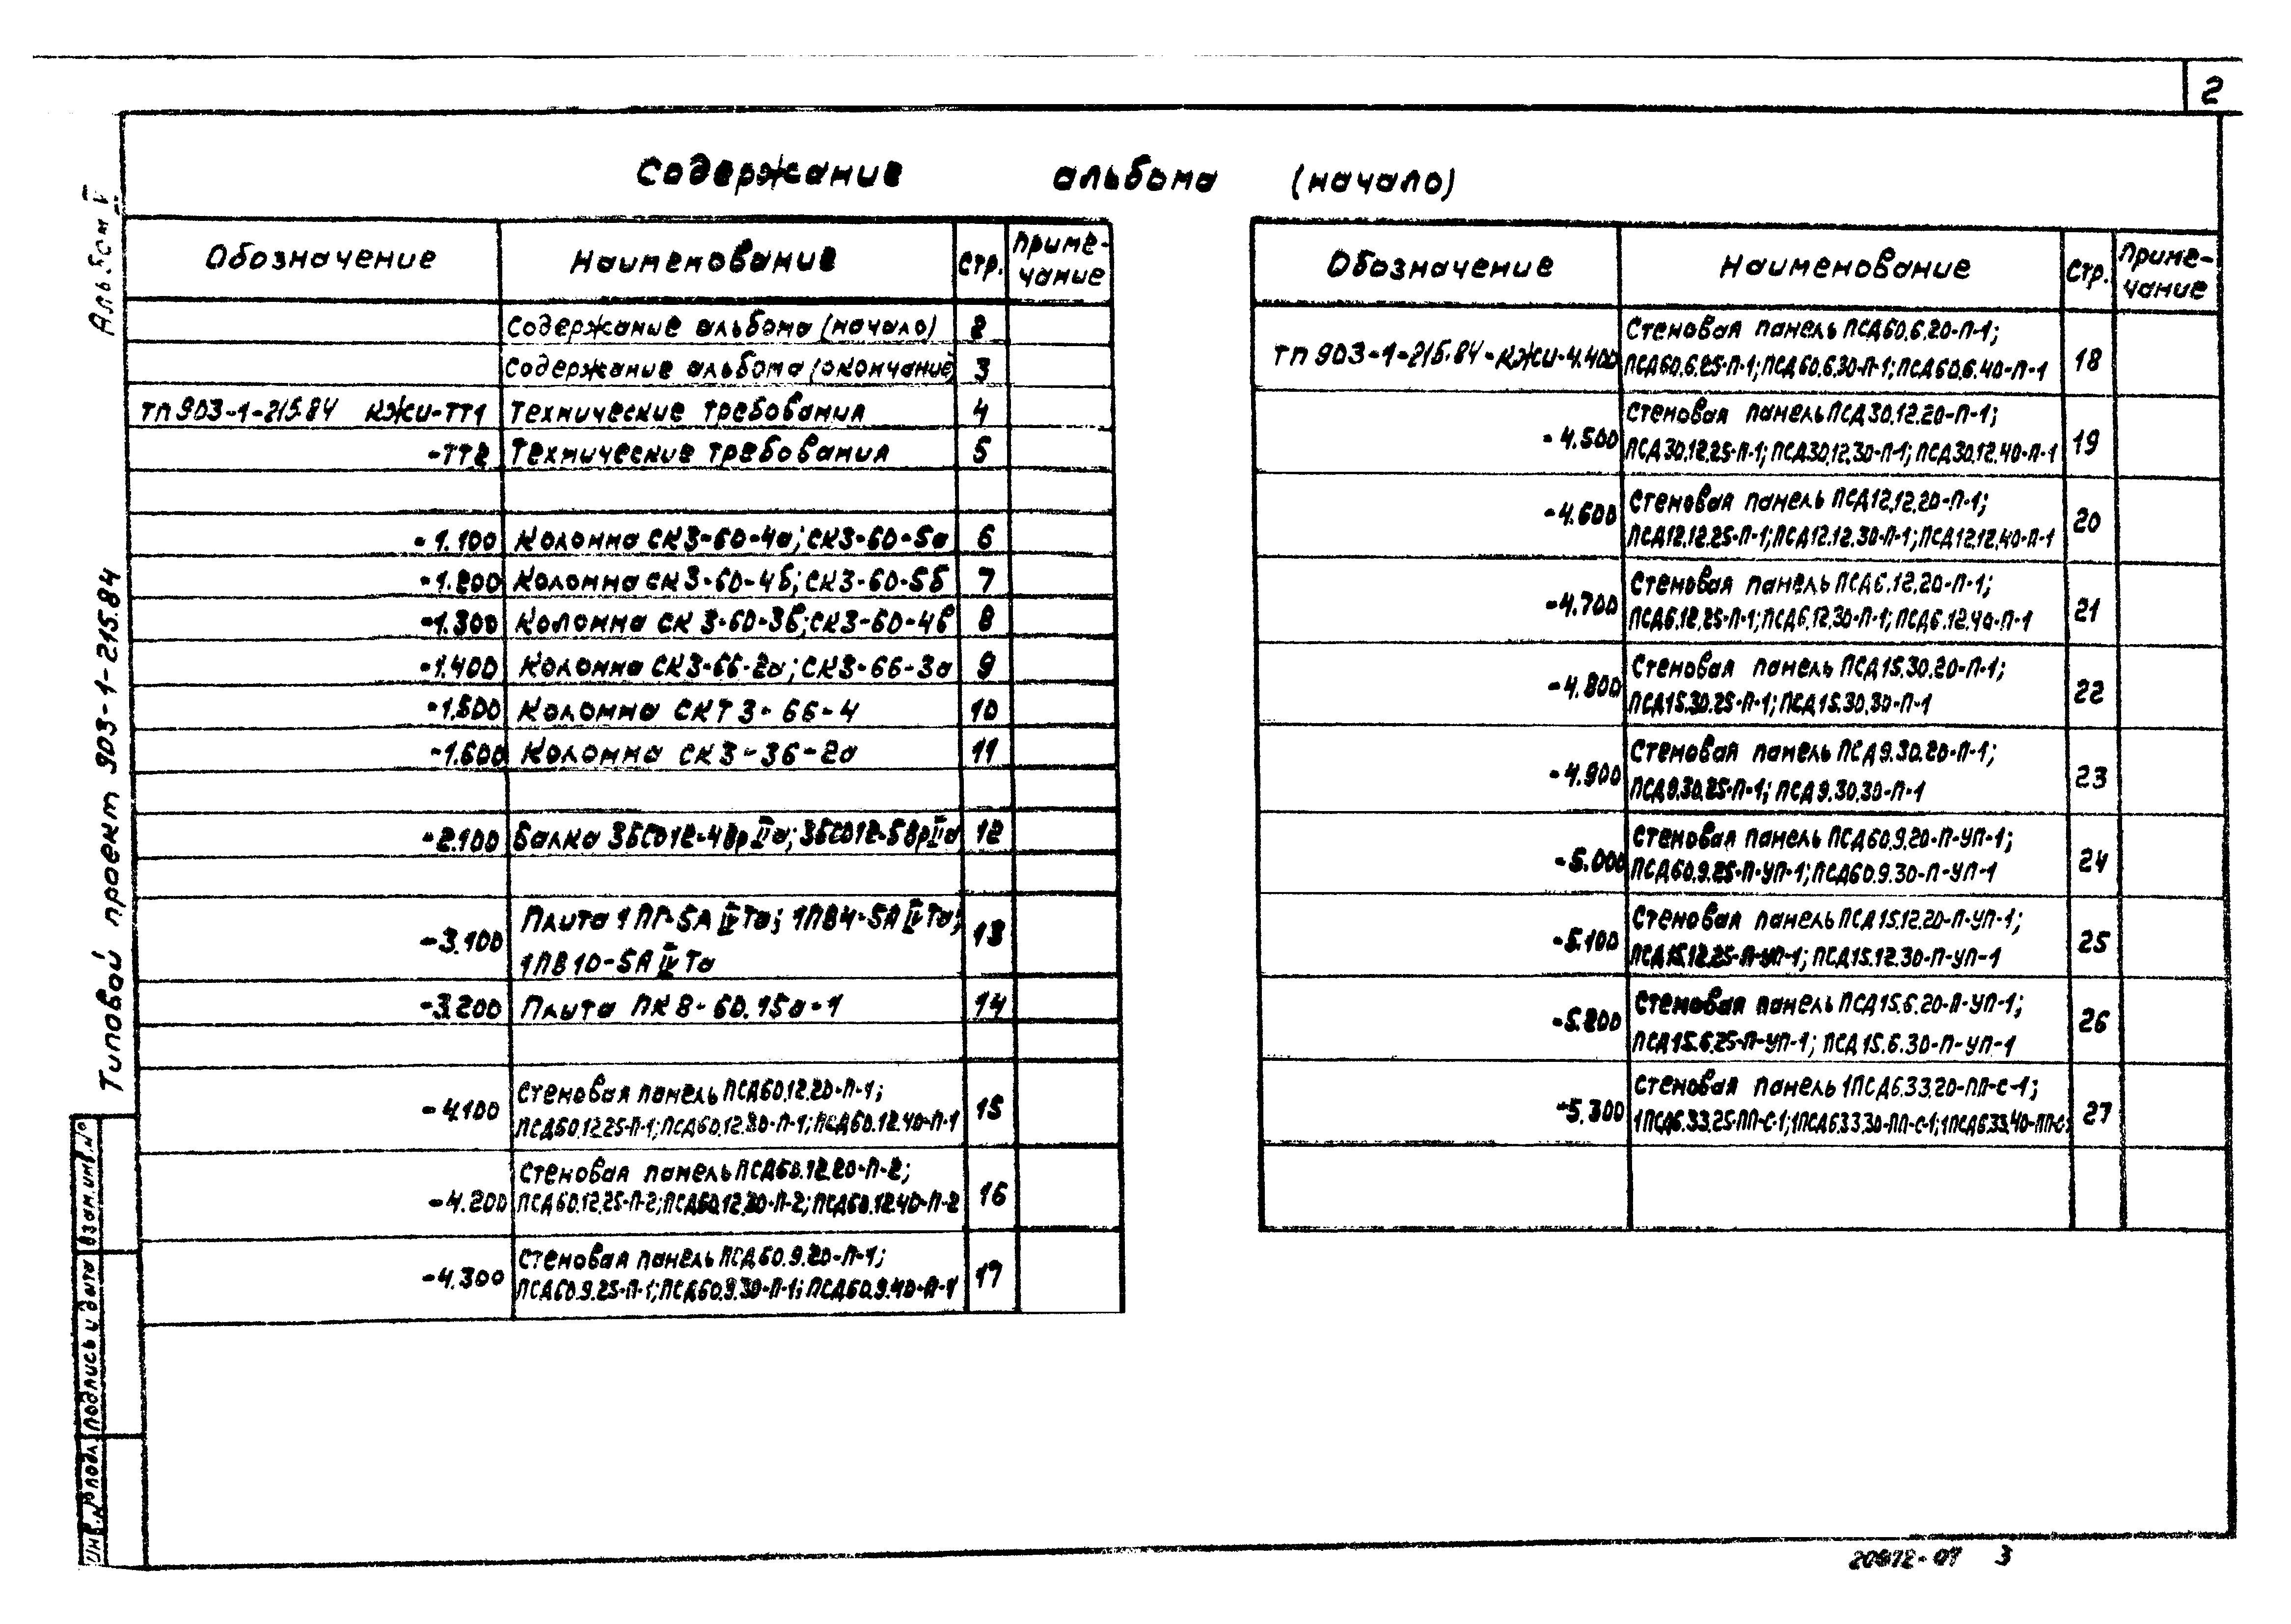 2
Содержание альбома (начало)
Альбом V
Типовой проект 903-1-215.84
Взам.инв.№
Подпись и дата
Инв.№ подл.
Обозначение Наименование Стр. Приме-
чание
Содержание альбома (начало) 2
Содержание альбома (окончание) 3
ТП 903-1-215.84 КЖИ-ТТ1 Технические требования 4
-ТТ2 Технические требования 5
-1.100 Колонна СК3-60-4а; СК3-60-5а 6
-1.200 Колонна СК3-60-4б; СК3-60-5б 7
-1.300 Колонна СК 3-60-3в; СК3-60-4в 8
-1.400 Колонна СК3-66-2а; СК3-66-3а 9
-1.500 Колонна СКТ 3-66-4 10
-1.600 Колонна СК3-36-2а 11
-2.100 Балка 3БСО12-4ВрIIа; 3БСО12-5ВрIIа 12
-3.100 Плита 1ПГ-5АIVТа; 1ПВ4-5АIVТа; 13
1ПВ10-5АIVТа
-3.200 Плита ПК8-60.15а-1 14
-4.100 Стеновая панель ПСД60.12.20-П-1; 15
ПСД60.12.25-П-1; ПСД60.12.30-П-1; ПСД60.12.40-П-1
-4.200 Стеновая панель ПСД60.12.20-П-2; 16
ПСД60.12.25-П-2; ПСД60.12.30-П-2; ПСД60.12.40-П-2
-4.300 Стеновая панель ПСД60.9.20-П-1; 17
ПСД60.9.25-П-1; ПСД60.9.30-П-1; ПСД60.9.40-П-1
Обозначение Наименование Стр. Приме-
чание
ТП 903-1-215.84-КЖИ-4.400 Стеновая панель ПСД60.6.20-П-1; 18
ПСД60.6.25-П-1; ПСД60.6.30-П-1; ПСД60.6.40-П-1
-4.500 Стеновая панель ПСД30.12.20-П-1; 19
ПСД30.12.25-П-1; ПСД30.12.30-П-1; ПСД30.12.40-П-1
-4.600 Стеновая панель ПСД12.12.20-П-1; 20
ПСД12.12.25-П-1; ПСД12.12.30-П-1; ПСД12.12.40-П-1
-4.700 Стеновая панель ПСД6.12.20-П-1; 21
ПСД6.12.25-П-1; ПСД6.12.30-П-1; ПСД6.12.40-П-1
-4.800 Стеновая панель ПСД15.30.20-П-1; 22
ПСД15.30.25-П-1; ПСД15.30.30-П-1
-4.900 Стеновая панель ПСД9.30.20-П-1; 23
ПСД9.30.25-П-1; ПСД9.30.30-П-1
-5.000 Стеновая панель ПСД60.9.20-П-УП-1; 24
ПСД60.9.25-П-УП-1; ПСД60.9.30-П-УП-1
-5.100 Стеновая панель ПСД15.12.20-П-УП-1; 25
ПСД15.12.25-П-УП-1; ПСД15.12.30-П-УП-1
-5.200 Стеновая панель ПСД15.6.20-П-УП-1; 26
ПСД15.6.25-П-УП-1; ПСД15.6.30-П-УП-1
-5.300 Стеновая панель 1ПСД6.33.20-ПП-С-1; 27
1ПСД6.33.25-ПП-С-1; 1ПСД6.33.30-ПП-С-1; 1ПСД6.33.40-ПП-С-
3